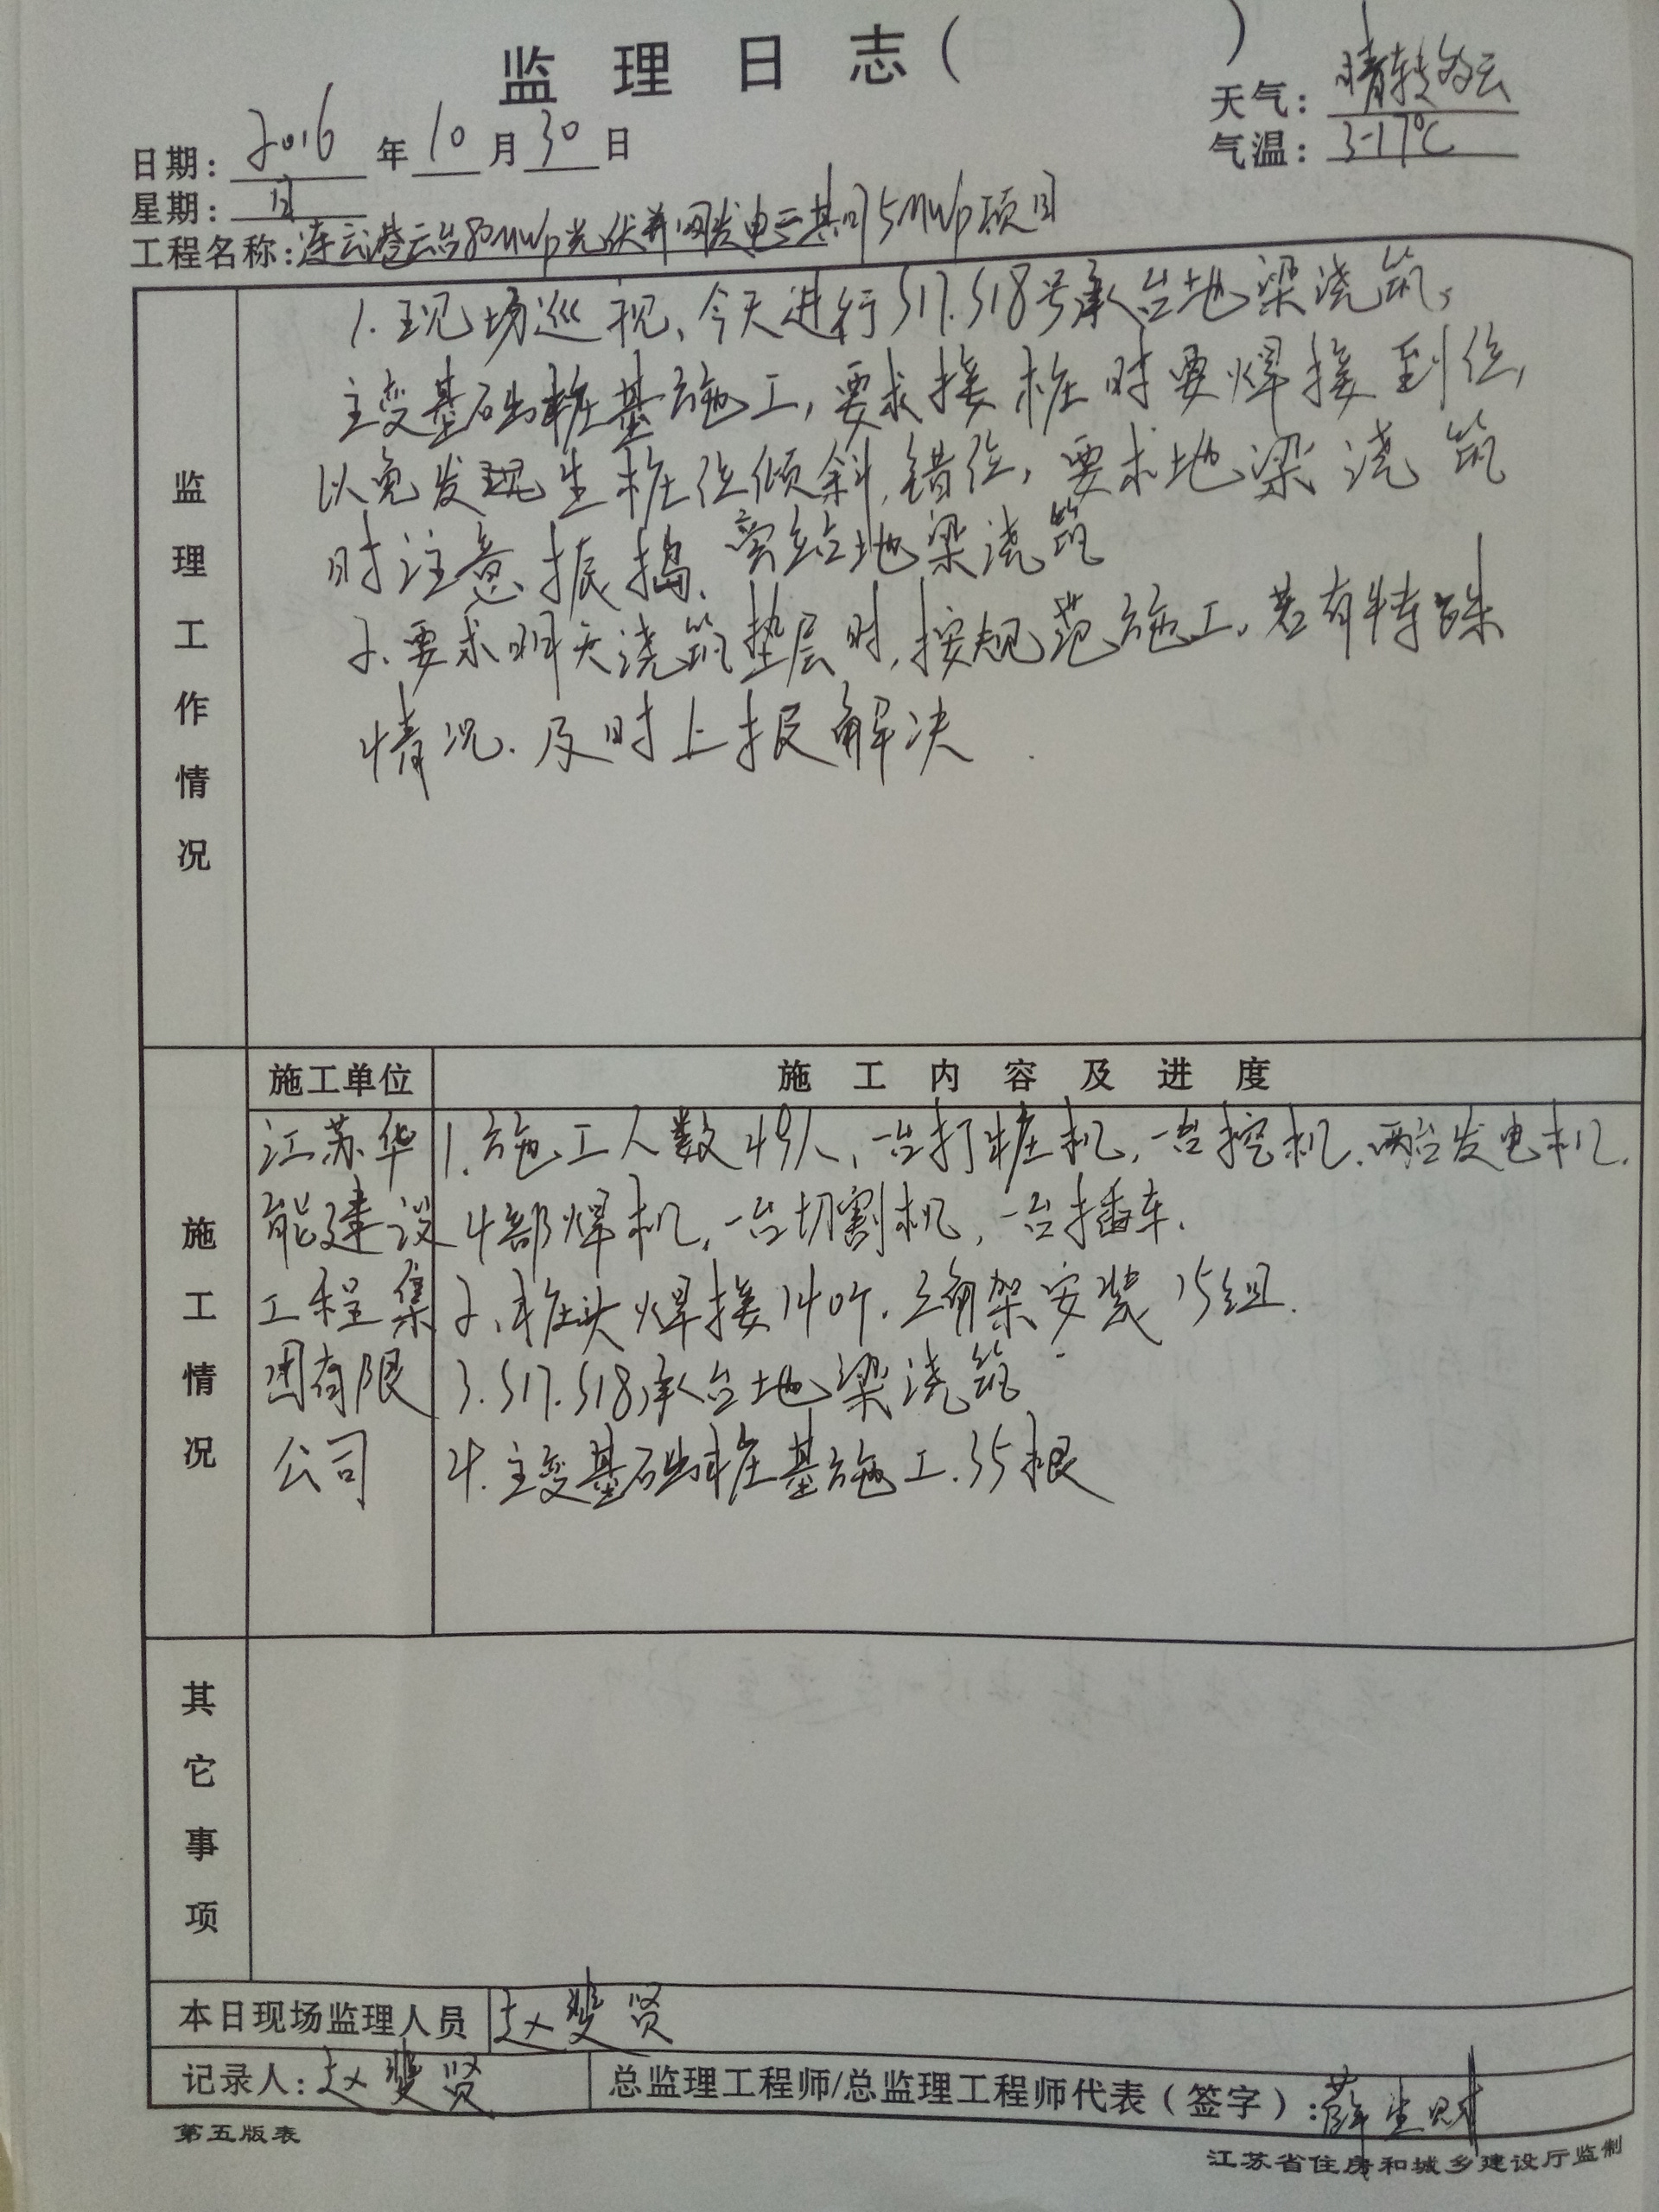 监理日志( )
天气：晴转多云
日期：2016年10月30日
气温：3-17℃
星期：日
工程名称：连云港云台80MWp光伏并网发电三期75MWp项目
监理工作情况
1.现场巡视、今天进行S17.S18号承台地梁浇筑、
主变基础桩基施工,要求接桩时要焊接到位,
以免发生桩位倾斜,错位,要求地梁浇筑
时注意振捣.旁站地梁浇筑
2、要求明天浇筑垫层时,按规范施工、若有特殊
情况.及时上报解决.
施工情况
施工单位 施工内容及进度
江苏华 1.施工人数49人,一台打桩机,一台挖机.两台发电机.
能建设 4部焊机,一台切割机,一台插车.
工程集 2、桩头焊接140个.三角架安装15组.
团有限 3.S17.S18承台地梁浇筑
公司 4.主变基础桩基施工.35根
其它事项
本日现场监理人员 赵斐贤
记录人：赵斐贤 总监理工程师/总监理工程师代表（签字）:薛生财
第五版表
江苏省住房和城乡建设厅监制